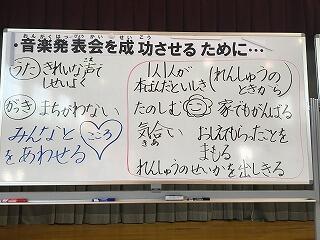 おんがくはっぴょうかい せいこう
・音楽発表会を成功させるために…
うた きれいな声で
こえ
せいいよく
がっき まちがわない
みんなと こころ
をあわせる
1人1人が
本ばんだといしき (れんしゅうのときから)
たのしむ 家でもがんばる
気合い おしえてもらったことを
きあ まもる
れんしゅうのせいかを出しきる